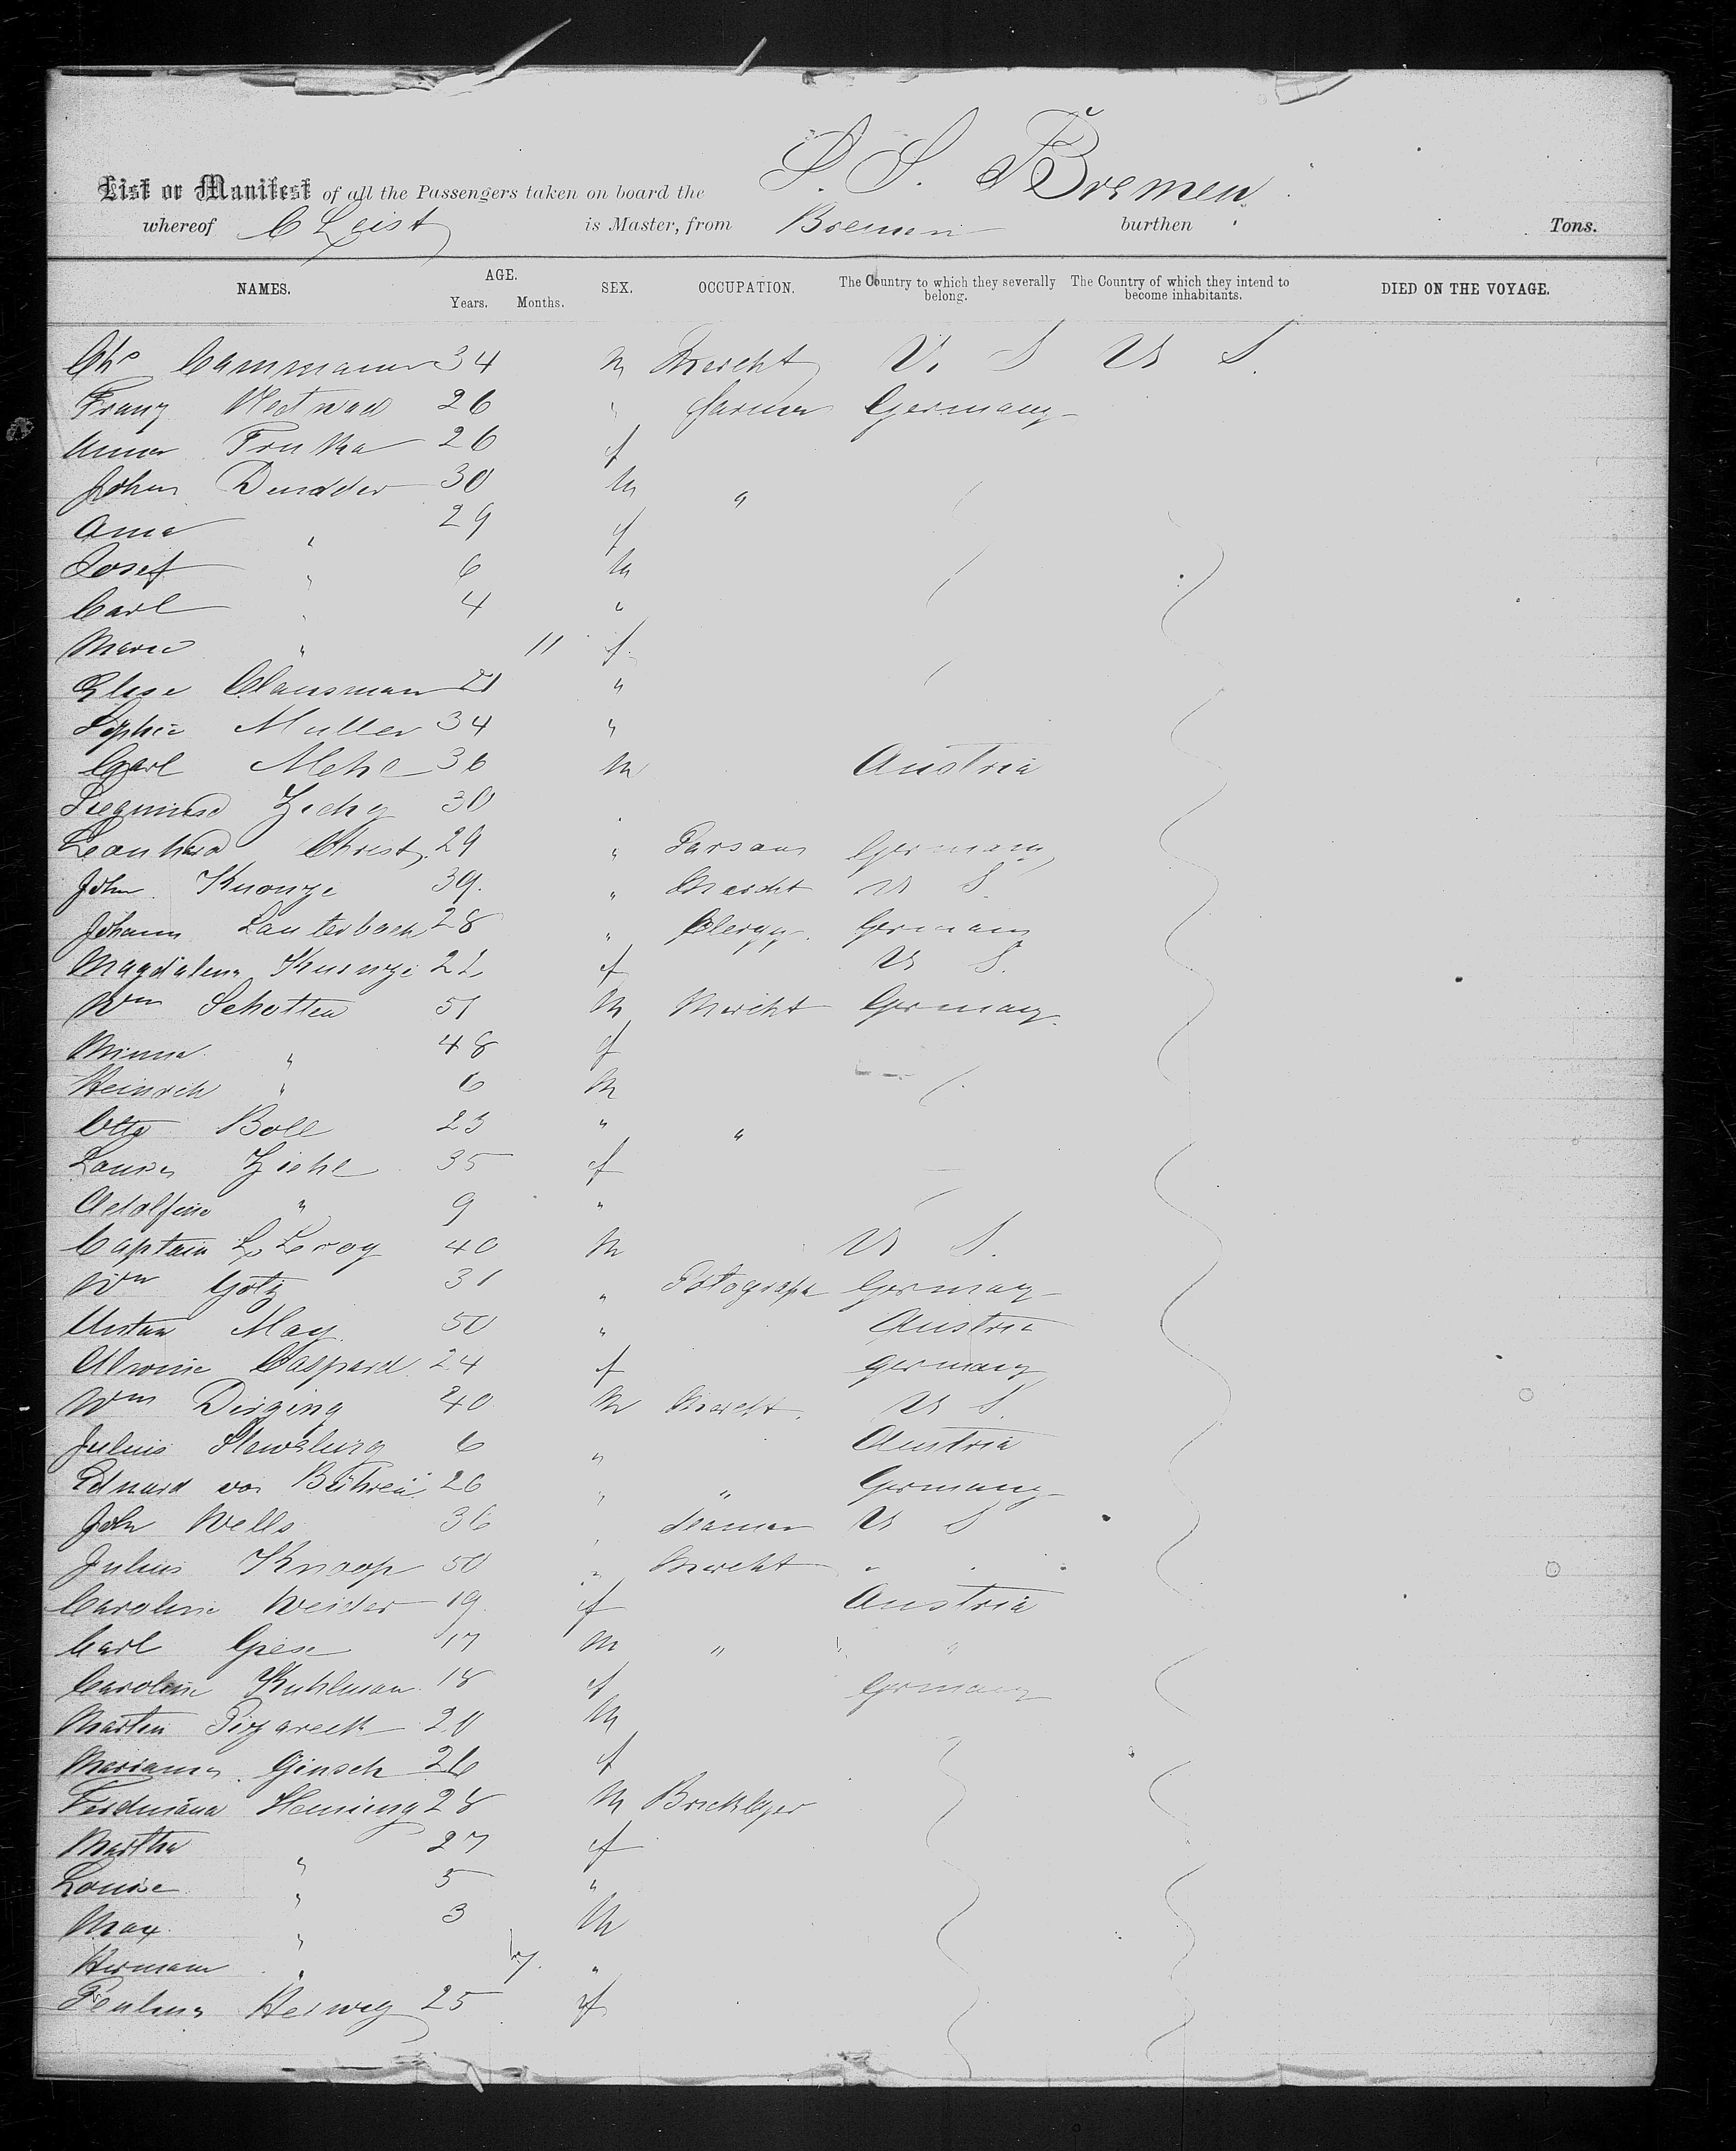 S. S. Bremen
List or Manifest of all the Passengers taken on board the
whereof C Leist is Master, from Bremen burthen Tons.
NAMES. AGE. Years. Months. SEX. OCCUPATION. The Country to which they severally belong. The Country of which they intend to become inhabitants. DIED ON THE VOYAGE.
Chs Cammann 34 M Mercht U. S U S.
Franz 26 " farmer Germany
Anna 26 f
Johan 30 M "
Anna " 29 f
Josef " 6 M
Carl " 4 "
Marie " 11 f
Elise Clausman 21 "
Sophie Muller 34 "
Carl 36 M Austria
Siegmund Zichy 30 "
Leonhard Christ 29 " Germany
John Kuonze 39. " Mercht U S.
Johann Lauterbach 28 " Clergy. Germany
Magdalena 22 f U S.
Wm Schotten 51 M Mercht Germany
Minna " 48 f
Heinrich " 6 M
Otto Boll 23 " "
Louise Ziehl 35 f
Adolfine " 9 "
Captain L. Leroy 40 M U S.
Wm Götz 31 " Fotograph Germany
May 50 " Austria
Alwine Caspard 24 f Germany
Wm 40 M Mercht. U S.
Julius 6 " Austria
Eduard von 26 " " Germany
John Wells 36 " Seaman U S
Julius Knoop 50 " Mercht " "
Caroline Weider 19 f Austria
Carl Giese 17 M " " "
Caroline Kuhlman 18 f Germany
Martin 20 M
Marianna Ginsch 26 f
Ferdinand Henning 28 M Bricklyer
Martha " 27 f
Louise " 5 "
Max " 3 M
Hermann " 7. "
Herwig 25 f